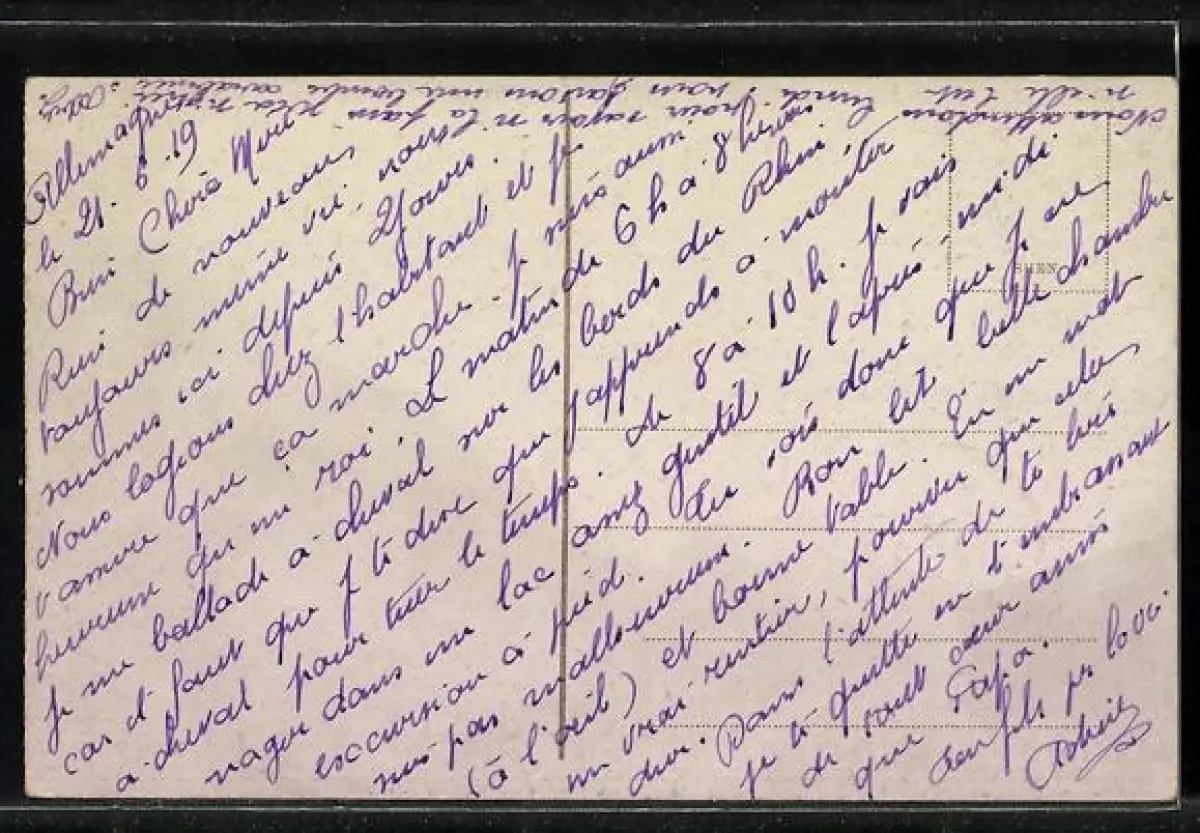 Allemagne
le 21. 6. 19
Bien Chère Mère
Rien de nouveau,
toujours même vie, nous
sommes ici depuis 2 jours.
Nous logeons chez l'habitant et je
t'assure que ça marche. je suis aussi
heureux qu'un roi. Le matin de 6 h à 8 heures
je me ballade à cheval sur les bords du Rhin
car il faut que je te dise que j'apprends à monter
à cheval pour tuer le temps. de 8 à 10 h. je vais
nager dans un lac assez gentil et l'après midi
excursion à pied. Tu vois donc que je ne
suis pas malheureux. Bon lit belle chambre
(à l'oeil) et bonne table. En un mot
un vrai rentier, pourvu que cela
dure. Dans l'attente de te lire
je te quitte en t'embrassant
de tout coeur ainsi
que Papa.
ton fils pr la vie.
Nous attendons lundi pour savoir si la paix
si elle est nous faisons une bombe carabinée